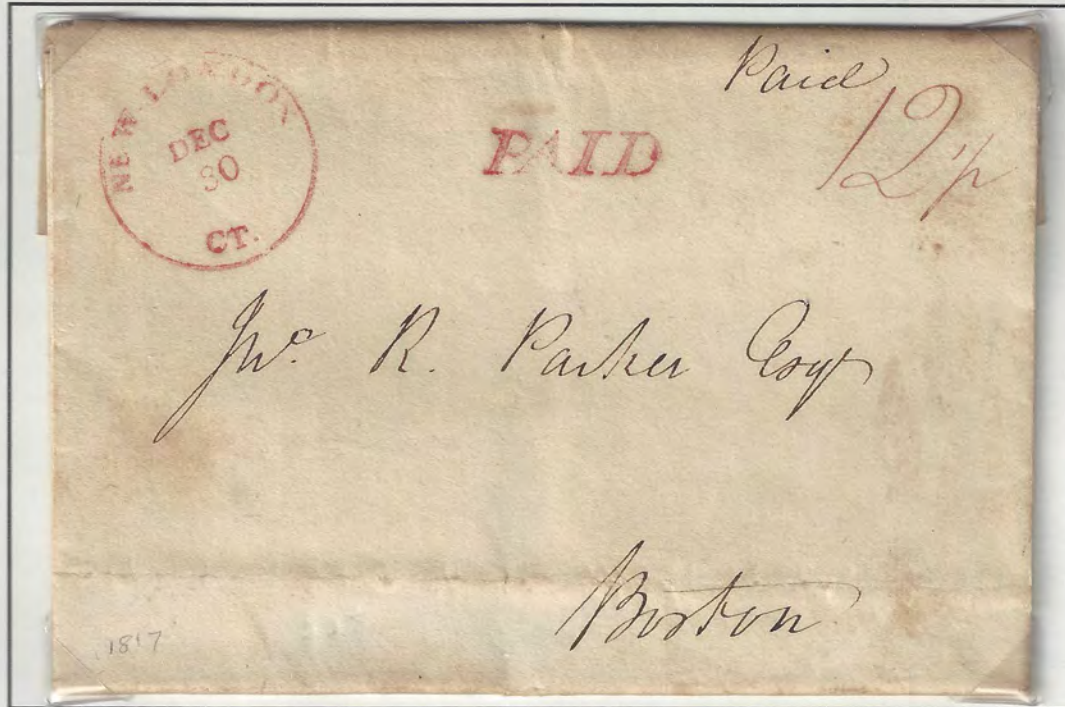 NEW LONDON
DEC
30
CT.
PAID
Paid
12 1/2
Jno. R. Parker Esqr
Boston
1817